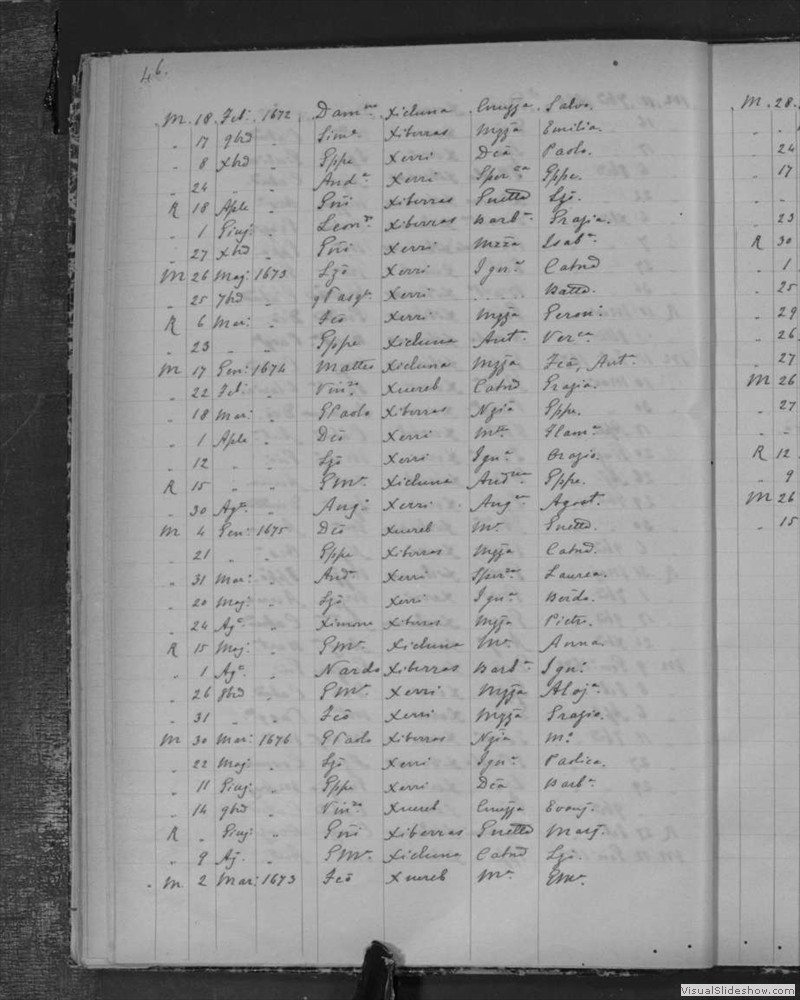 46.
M. 18 Feb. 1672 Dam.co Xicluna Cnuzza Salvo. M 28.
" 17 9bre " Sim.e Xiberras Mzza Emilia.
" 8 Xbre " Gppe Xerri Dca Paolo. 24
" 24 " " And.a Xerri Sper.za Gppe. 17
R 18 Aple " Gni Xiberras Gnetta Lzo.
" 1 Giug: " Leon.do Xiberras Barb.a Grazia. 23
" 27 Xbre " Gni Xerri Mzza Isab.a R 30
M 26 Mag: 1673 Lzo Xerri Ign.a Catnd 1
" 25 7bre " q Pasq.e Xerri .... Batta. 25
R 6 Mar: " Fco Xerri Mzza Geron: 29
" 23 " " Gppe Xicluna Ant. Ver.ca 26
M 17 Gen: 1674 Matteo Xicluna Mzza Fco, Ant. 27
" 22 Feb: " Vin.zo Xuereb Catnd Grazia. M 26
" 18 Mar: " GPaolo Xiberras Ngia Gppe. 27
" 1 Aple " Dco Xerri M.a
" 12 " " Lzo Xerri Ign.a Orazio. R 12
R 15 " " GM.a Xicluna And.na Gppe. 9
" 30 Ag.o " Ang: Xerri Ang.a Agost. M 26
M 4 Gen: 1675 Dco Xuereb M.a Gnetta. 15
" 21 " " Gppe Xiberras Mzza Catnd.
" 31 Mar: " And.a Xerri Sper.za Laurea.
" 20 Mag: " Lzo Xerri Ign.a Berdo.
" 24 Ag.o " Ximone Xiberras Mzza Pietro.
R 15 Mag: " GM.a Xicluna M.a Anna.
" 1 Ag.o " Nardo Xiberras Barb.a Ign:
" 26 8bre " GM.a Xerri Mzza Aloj.a
" 31 " " Fco Xerri Mzza Grazia.
M 30 Mar: 1676 GPaolo Xiberras Ngia M.a
" 22 Mag: " Lzo Xerri Ign.a Paolica.
" 11 Giug: " Gppe Xerri Dca Barb.a
" 14 9bre " Vin.zo Xuereb Cnuzza Evang.
R " Giug: " Gni Xiberras Gnetta Marg.
" 9 Ag. " GM.a Xicluna Catnd Lzo.
M 2 Mar: 1673 Fco Xuereb M.a GM.a
VisualSlideshow.com